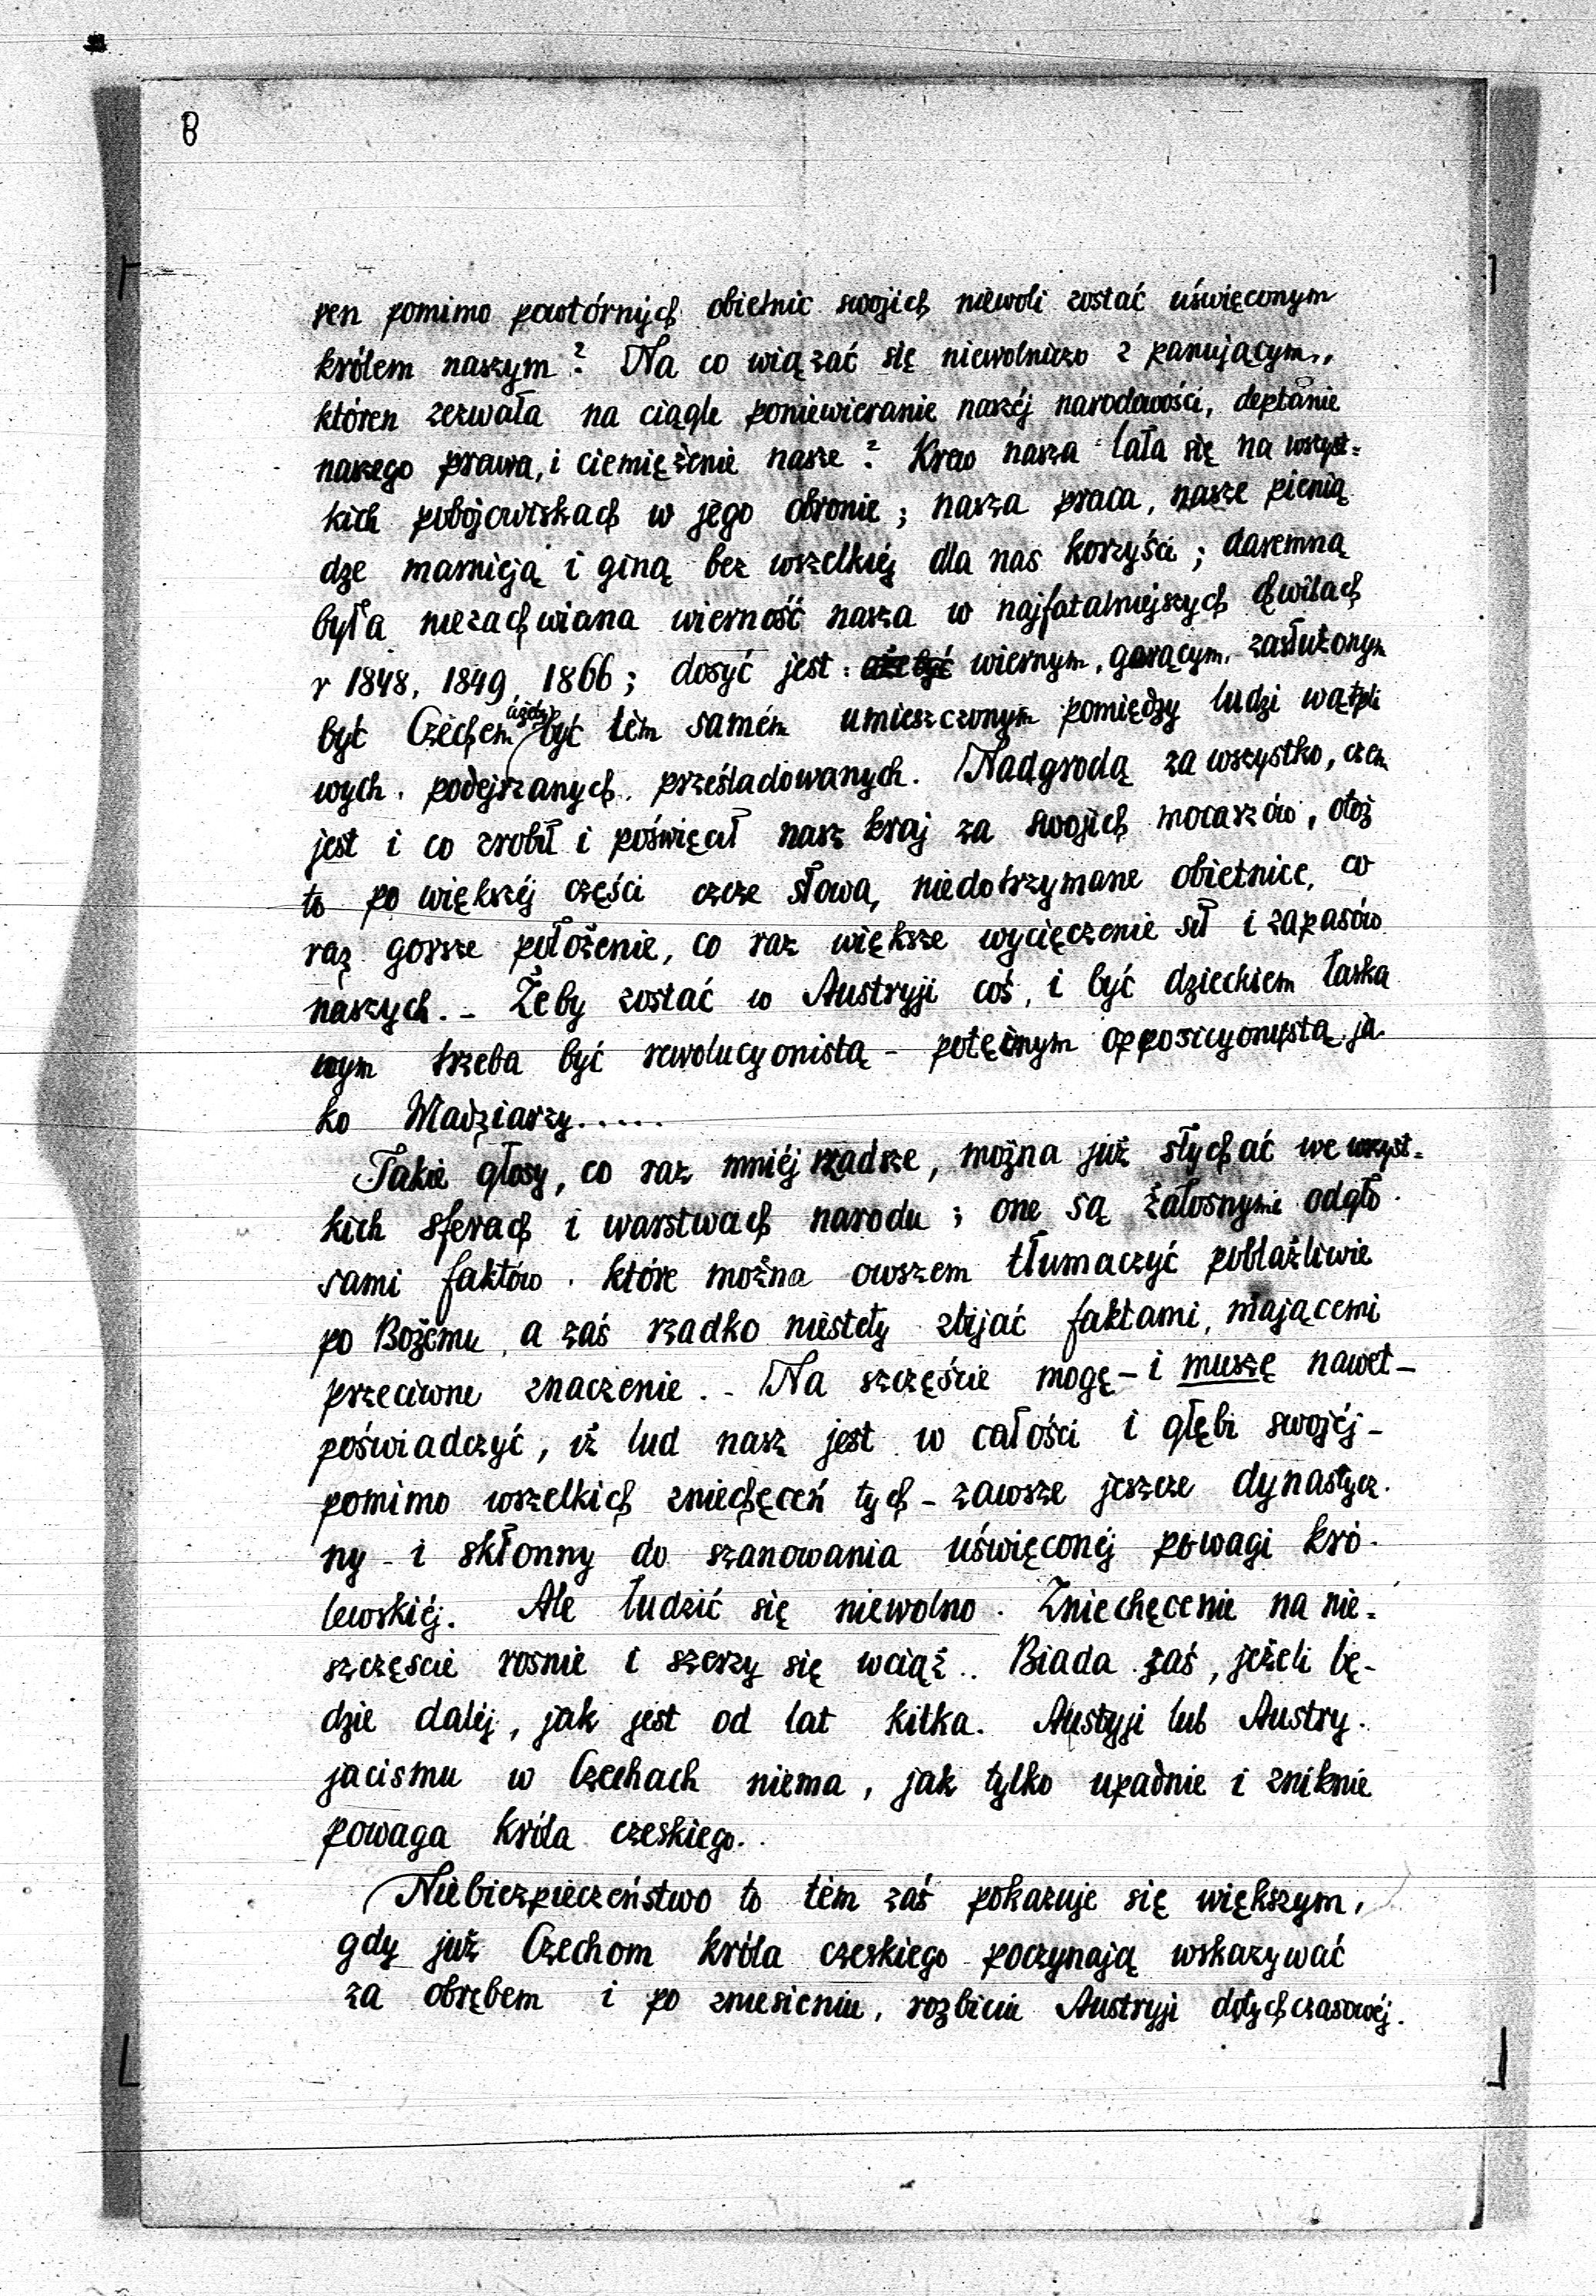 8
ren pomimo powtórnych obietnic swojich niewoli zostać uświęconym
królem naszym? Na co wiązać się niewolniczo z panującym,
któren zezwała na ciągle poniewieranie naszéj narodowości, deptanie
naszego prawa, i ciemiężenie nasze? Krew nasza lała się na wszyst=
kich pobojowiskach w jego obronie; nasza praca, nasze pienią
dze marnieją i giną bez wszelkiéj dla nas korzyści; daremną
była niezachwiana wierność nasza w najfatalniejszych chwilach
r 1848, 1849, 1866; dosyć jest wiernym, gorącym, zasłużonym
być Czechem ażeby być tém samém umieszczonym pomiędzy ludzi wątpli
wych, podejrzanych, prześladowanych. Nadgrodą za wszystko, czem
jest i co zrobił i poświęcał nasz kraj za swojich mocarzów, otoż
to po większéj części czcze słowa, niedotrzymane obietnice, co
raz gorsze położenie, co raz większe wycięczenie sił i zapasów
naszych. - Żeby zostać w Austryji coś, i być dzieckiem łaska
wym trzeba być rewolucyonistą - potężnym opposicyonistą, ja
ko Madziarzy.....
Takie głosy, co raz mniéj rzadsze, można już słychać we wszyst=
kich sferach i warstwach narodu; one są żałosnymi odgło
sami faktów, które można owszem tłumaczyć pobłażliwie
po Bożemu, a zaś rzadko niestety zbijać faktami, mającemi
przeciwne znaczenie. - Na szczęście mogę - i muszę nawet -
poświadczyć, iż lud nasz jest w całości i głębi swojéj -
pomimo wszelkich zniechęceń tych - zawsze jeszcze dynastycz-
ny - i skłonny do szanowania uświęconéj powagi kró-
lewskiéj. Ale łudzić się niewolno. Zniechęcenie na nie=
szczęscie rosnie i szerzy się wciąż.. Biada zaś, jeżeli bę-
dzie daléj, jak jest od lat kilka. Austyji lub Austry-
jacismu w Czechach niema, jak tylko upadnie i zniknie
powaga króla czeskiego.
Niebiezpieczeństwo to tém zaś pokazuje się większym,
gdy już Czechom króla czeskiego poczynają wskazywać
za obrębem i po zniesieniu, rozbiciu Austryji dotychczasowéj.